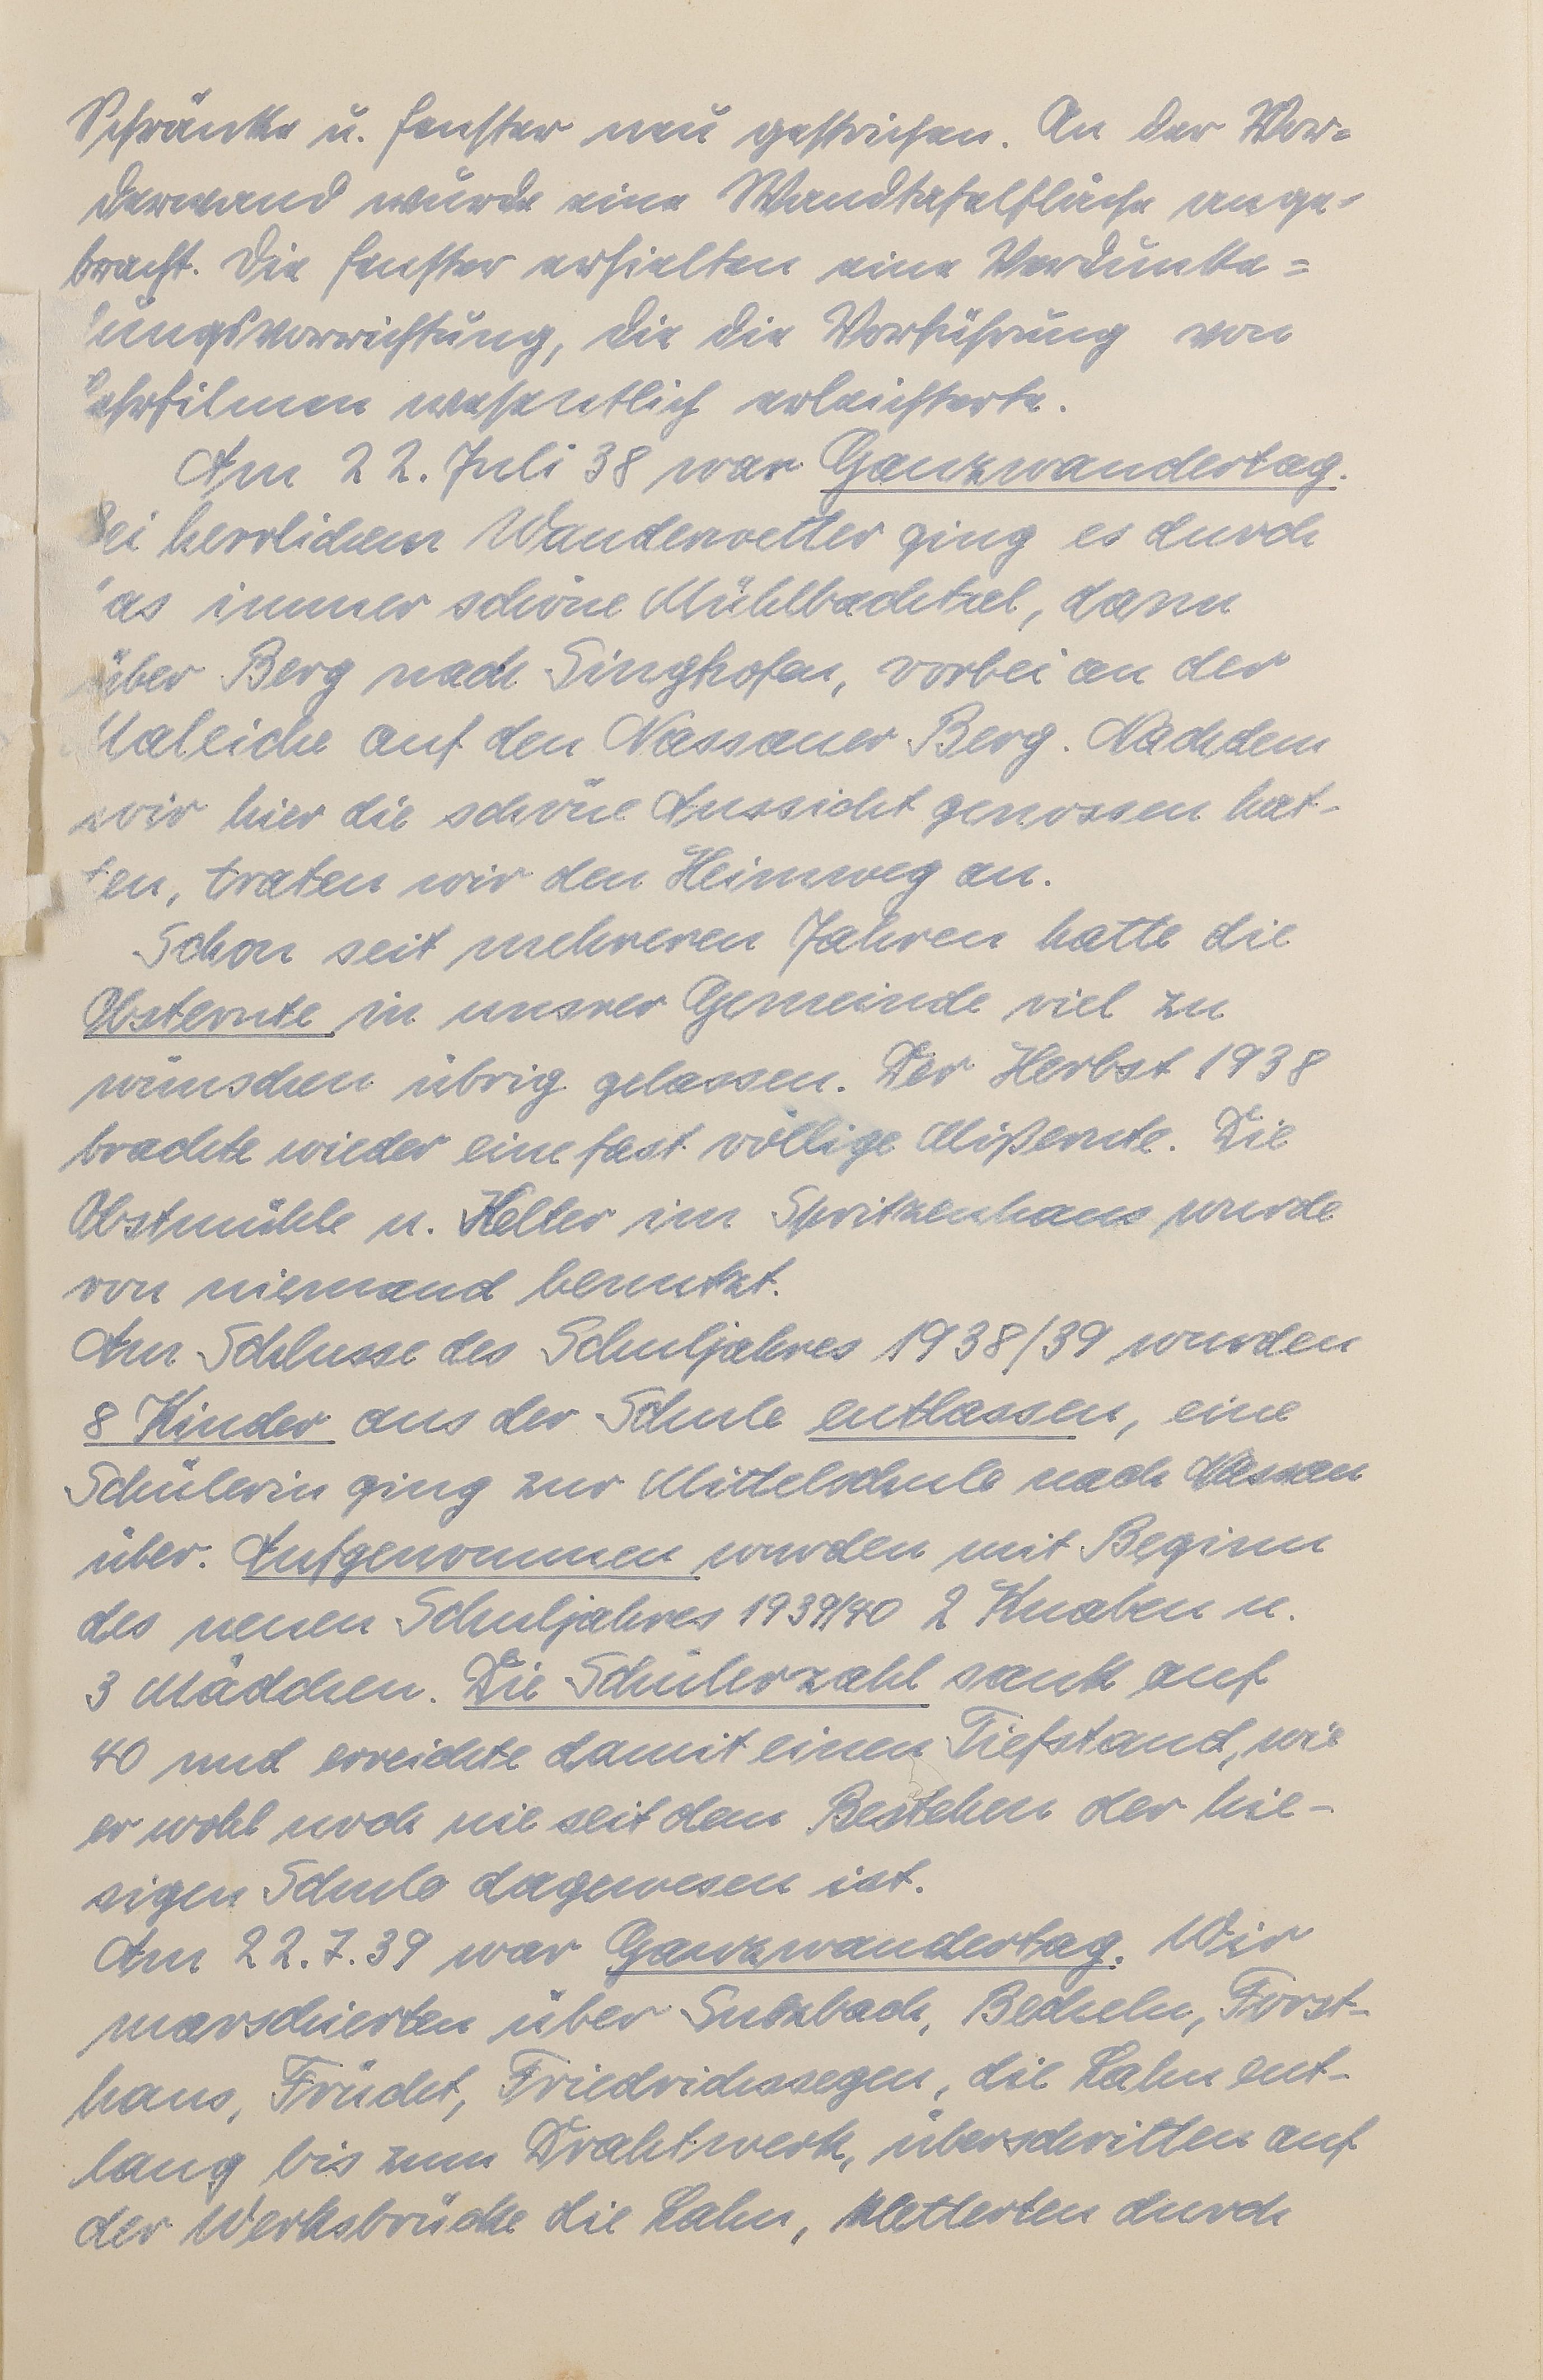 Schränke u. Fenster neu gestrichen. An der Vor=
derwand wurde eine Wandtafelfläche ange=
bracht. Die Fenster erhielten eine Verdunke=
lungsvorrichtung, die die Vorführung von
Lehrfilmen wesentlich erleichterte.
Am 22. Juli 38 war Ganzwandertag.
Bei herrlichem Wanderwetter ging es durch
das immer schöne Mühlbachtal, dann
über Berg nach Singhofen, vorbei an der
Maleiche auf den Nassauer Berg. Nachdem
wir hier die schöne Aussicht genossen hat-
ten, traten wir den Heimweg an.
Schon seit mehreren Jahren hatte die
Obsternte in unsrer Gemeinde viel zu
wünschen übrig gelassen. Der Herbst 1938
brachte wieder eine fast völlige Mißernte. Die
Obstmühle u. Kelter im Spritzenhaus wurde
von niemand benutzt.
Am Schlusse des Schuljahres 1938/39 wurden
8 Kinder aus der Schule entlassen, eine
Schülerin ging zur Mittelschule nach Nassau
über. Aufgenommen wurden mit Beginn
des neuen Schuljahres 1939/40 2 Knaben u.
3 Mädchen. Die Schülerzahl sank auf
40 und erreichte damit einen Tiefstand, wie
er wohl noch nie seit dem Bestehen der hie-
sigen Schule dagewesen ist.
Am 22.7.39 war Ganzwandertag. Wir
marschierten über Sulzbach, Becheln, Forst-
haus, Frücht, Friedrichssegen, die Lahn ent-
lang bis zum Drahtwerk, überschritten auf
der Werksbrücke die Lahn, kletterten durch